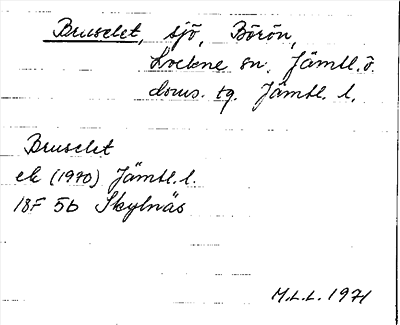 Bruselet, sjö, Börön,
Lockne sn. Jämtl. ö.
doms. tg. Jämtl. l.
Bruselet
ek (1970) Jämtl. l.
18F 5b Skylnäs
M.L.L. 1971